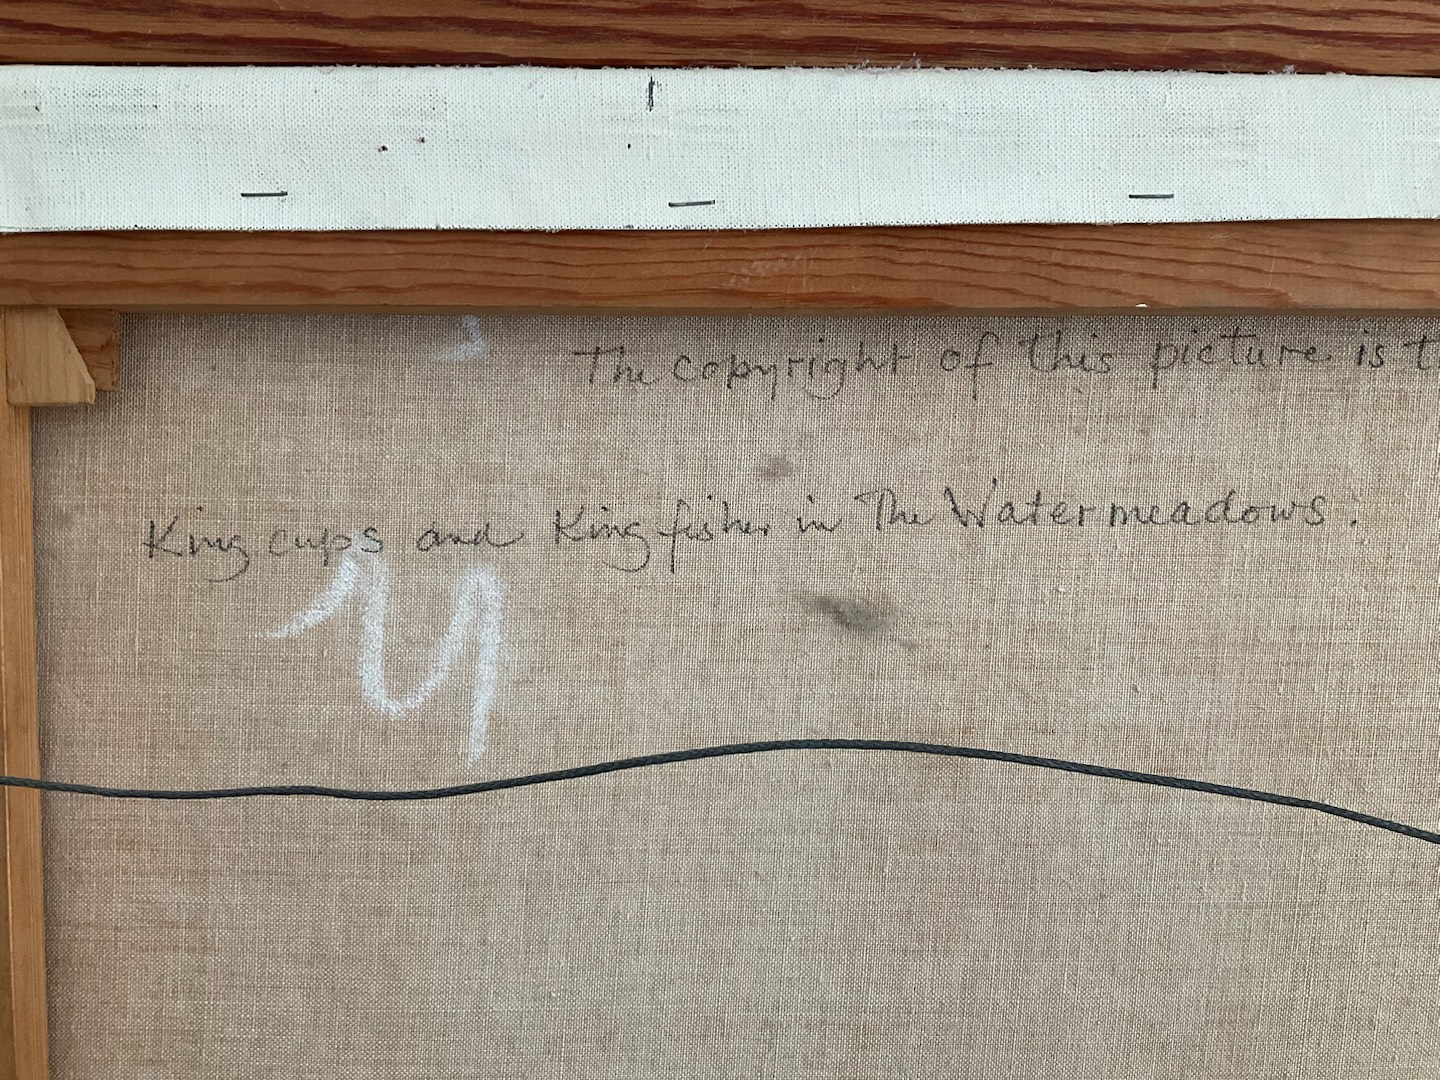 The copyright of this picture is
King cups and King fisher in The Water meadows.